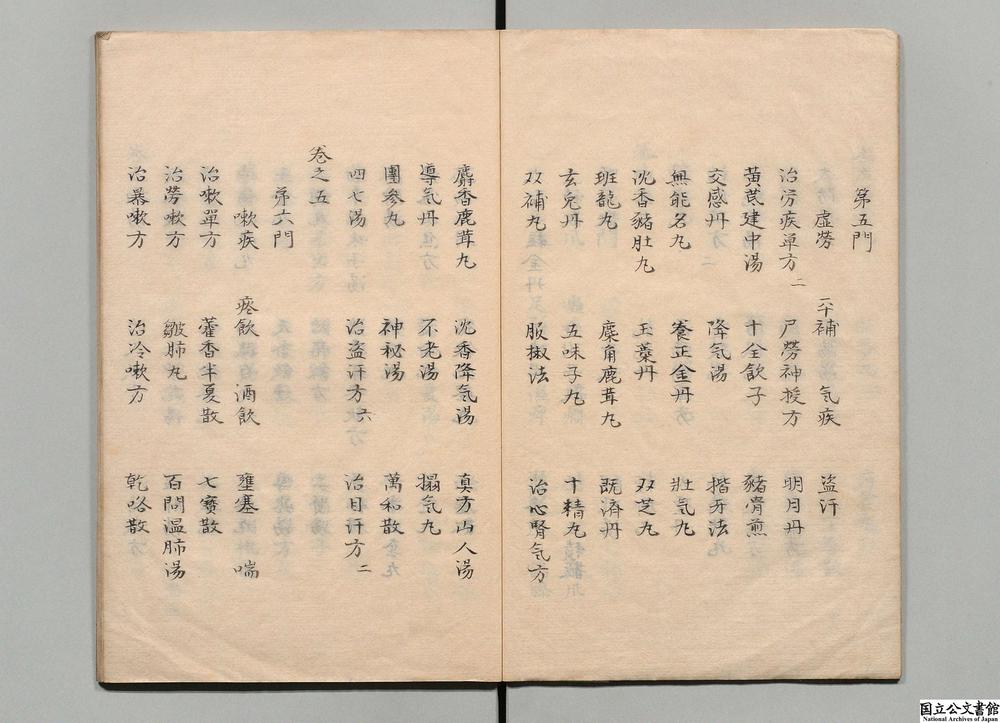 第五門
虛勞　平補　気疾　盜汗
治労疾单方二　尸勞神授方　明月丹
黄芪建中湯　十全飲子　豬骨煎
交感丹　降気湯　揩牙法
無能名丸　養正金丹　壯気丸
沈香豬肚丸　玉藁丹　双芝丸
班龍丸　麋角鹿茸丸　既濟丹
玄兔丹　五味子丸　十精丸
双補丸　服椒法　治心腎気方
麝香鹿茸丸　沈香降気湯　真方山人湯
導気丹　不老湯　搨気丸
團參丸　神秘湯　萬和散
四七湯　治盜汗方六　治目汗方二
卷之五
第六門
嗽疾　痰飲　酒飲　壅塞　喘
治嗽單方　藿香半夏散　七寶散
治勞嗽方　皺肺丸　百問温肺湯
治暴嗽方　治冷嗽方　乾咯散
国立公文書館
National Archives of Japan